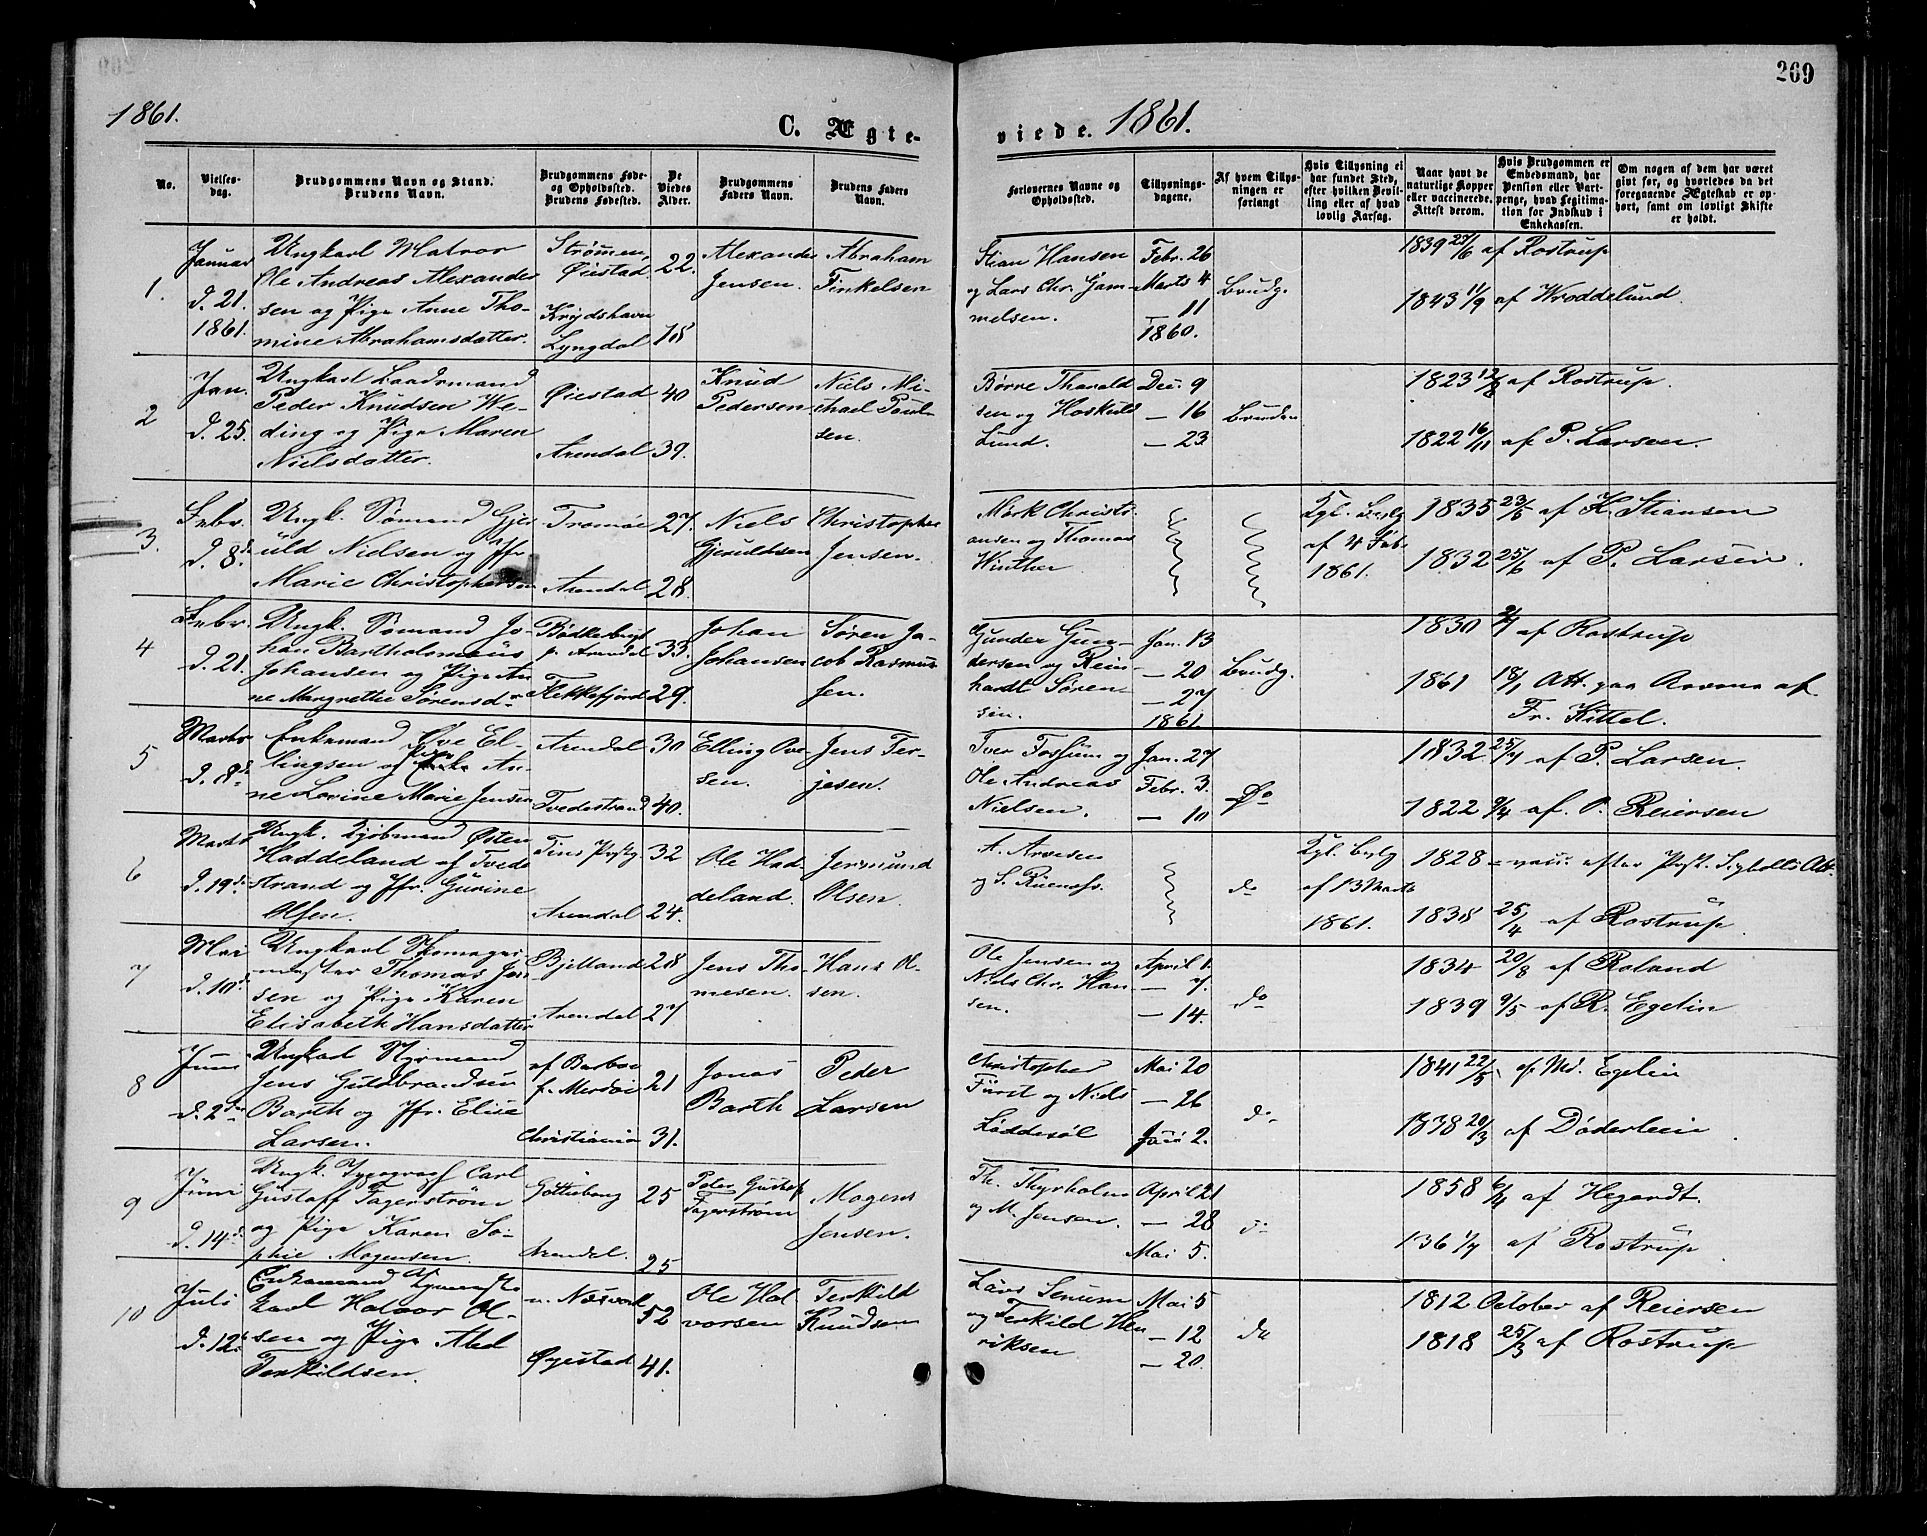 269
1861.
C. Ægte-
viede. 1861.
No.
Vielses-
dag.
Brudgommens Navn og Stand.
Brudens Navn.
Brudgommens Føde-
og Opholdssted.
Brudens Fødested.
De
Viedes
Alder.
Brudgommens
Faders Navn.
Brudens Faders
Navn.
Forlovernes Navne og
Opholdssted.
Tillysnings-
dagene.
Af hvem Tillys-
ningen er
forlangt
Hvis Tillysning ei
har fundet Sted,
efter hvilken Bevil-
ling eller af hvad
lovlig Aarsag.
Naar havt de
naturlige Kopper
eller vaccinerede.
Attest derom.
Hvis Brudgommen er
Embedsmand, har
Pension eller Vart-
penge, hvad Legitima-
tion for Indskud i
Enkekassen.
Om nogen af dem har været
gift før, og hvorledes da det
foregaaende Ægteskab er op-
hørt, samt om lovligt Skifte
er holdt.
1.
Januar
d. 21.
1861.
Ungkarl Matros
Ole Andreas Alexander
sen og Pige Anne Tho-
mine Abrahamsdatter.
Strømen,
Øiestad.
Krydshavn
Lyngdal
22.
18
Alexander
Jensen.
Abraham
Finkelsen
Stian Hansen
og Lars Chr. Gam-
melsen.
Febr. 26
Marts 4
— 11
1860.
Brudg.
1839 23/6 af Rostrup
1843 11/9 af Wroddelund.
2
Jan.
d. 25.
Ungkarl Baadsmand
Peder Knudsen We-
ding og Pige Maren
Nielsdatter.
Øiestad
Arendal
40
39.
Knud
Pedersen
Niels Mi-
chael Poul-
sen.
Børre Tharald
sen og Hoskuld
Lund.
Dec. 9
— 16
— 23
Bruden
1823 12/8 af Rostrup.
1822 16/11 af P. Larsen.
3.
Febr.
d. 8de
Ungk. Sømand Gjer
uld Nielsen og Jfr.
Marie Christophersen
Tromøe
Arendal
27.
28.
Niels
Gjeruldsen
Christopher
Jensen.
Mørk Christi-
ansen og Thomas
Winther
Kgl. Bevlg
af 4 Feb.
1861.
1835 23/6 af H. Stiansen
1832 25/6 af P. Larsen.
4
Febr.
d. 21.
Ungk. Sømand Jo-
han Bartholomæus
Johansen og Pige An
ne Margrethe Sørensdr
p. Arendal
Flekkefjord
33.
29.
Johan
Johansen
Søren Ja-
cob Rasmus
sen.
Gunder Gun-
dersen og Rein-
hardt Søren-
sen.
Jan. 13
— 20
— 27
1861
Brudg.
1830 af Rostrup
1861 18/1 Att. paa Aarene af
Fr. Kittel.
5
Marts
d. 8de
Enkemand Ove El-
lingsen og Pige An-
ne Lovine Marie Jensen
Arendal
Tvedestrand
30
40.
Elling Ove-
sen.
Jens Ter-
jesen.
Iver Fossum og
Ole Andreas
Nielsen.
Jan. 27
Febr. 3.
— 10
Do
1832 25/7 af P. Larsen.
1822 9/4 af. O. Reiersen
6
Marts
d. 19de
Ungk. Kjøbmand Østen
Haddeland af Tvede
strand og Jfr. Gurine
Olsen.
Tins Pgj
Arendal
32
24.
Ole Had-
deland.
Jermund
Olsen.
A. Arnesen
og S.
do
Kgl. Bevlg
af 13 Marts
1861.
1828 = vacc. efter Præst. Att.
1838 25/4 af Rostrup.
7
Mai
d. 10de
Ungkarl Skomager-
mester Thomas Jen
sen og Pige Karen
Elisabeth Hansdatter
Bjelland
Arendal
28
27
Jens Tho-
mesen.
Hans Ol-
sen.
Ole Jensen og
Niels Chr. Han
sen.
April 1.
— 7.
— 14.
do
1834 20/8 af Roland
1839 9/5 af R. Egelin
8
Juni
d. 2den
Ungkarl Styrmand
Jens Guldbrandsen
Barth og Jfr. Elise
Larsen.
af Barboe
f. Merdøe
Christiania
21
31.
Jonas
Barth
Peder
Larsen
Christopher
Fürst og Niels
Løddesøl
Mai 20
— 26
Juni 2.
do
1841 22/5 af Md. Egelin
1838 20/3 af Døderlein
9
Juni
d. 14de
Ungk. Typograf Carl
Gustaff Fagerstrøm
og Pige Karen So-
phie Mogensen
Gøtteborg
Arendal.
25
25
Peter Gustaf
Fagerstrøm
Mogens
Jensen.
Th. Thyrholm
og M. Jensen.
April 21
— 28
Mai 5.
do
1858 6/4 af Hegardt.
136 1/7 af Rostrup.
10
Juli
d. 12te
Enkemand
karl Halvor Ol-
sen og Pige Abel
Terkildsen.
Øyestad
52
41.
Ole Hal
vorsen
Terkild
Knudsen
Lars Senum
og Terkild Hen
riksen
Mai 5
— 12
— 20.
do
1812 October af Reiersen
1818 25/3 af Rostrup